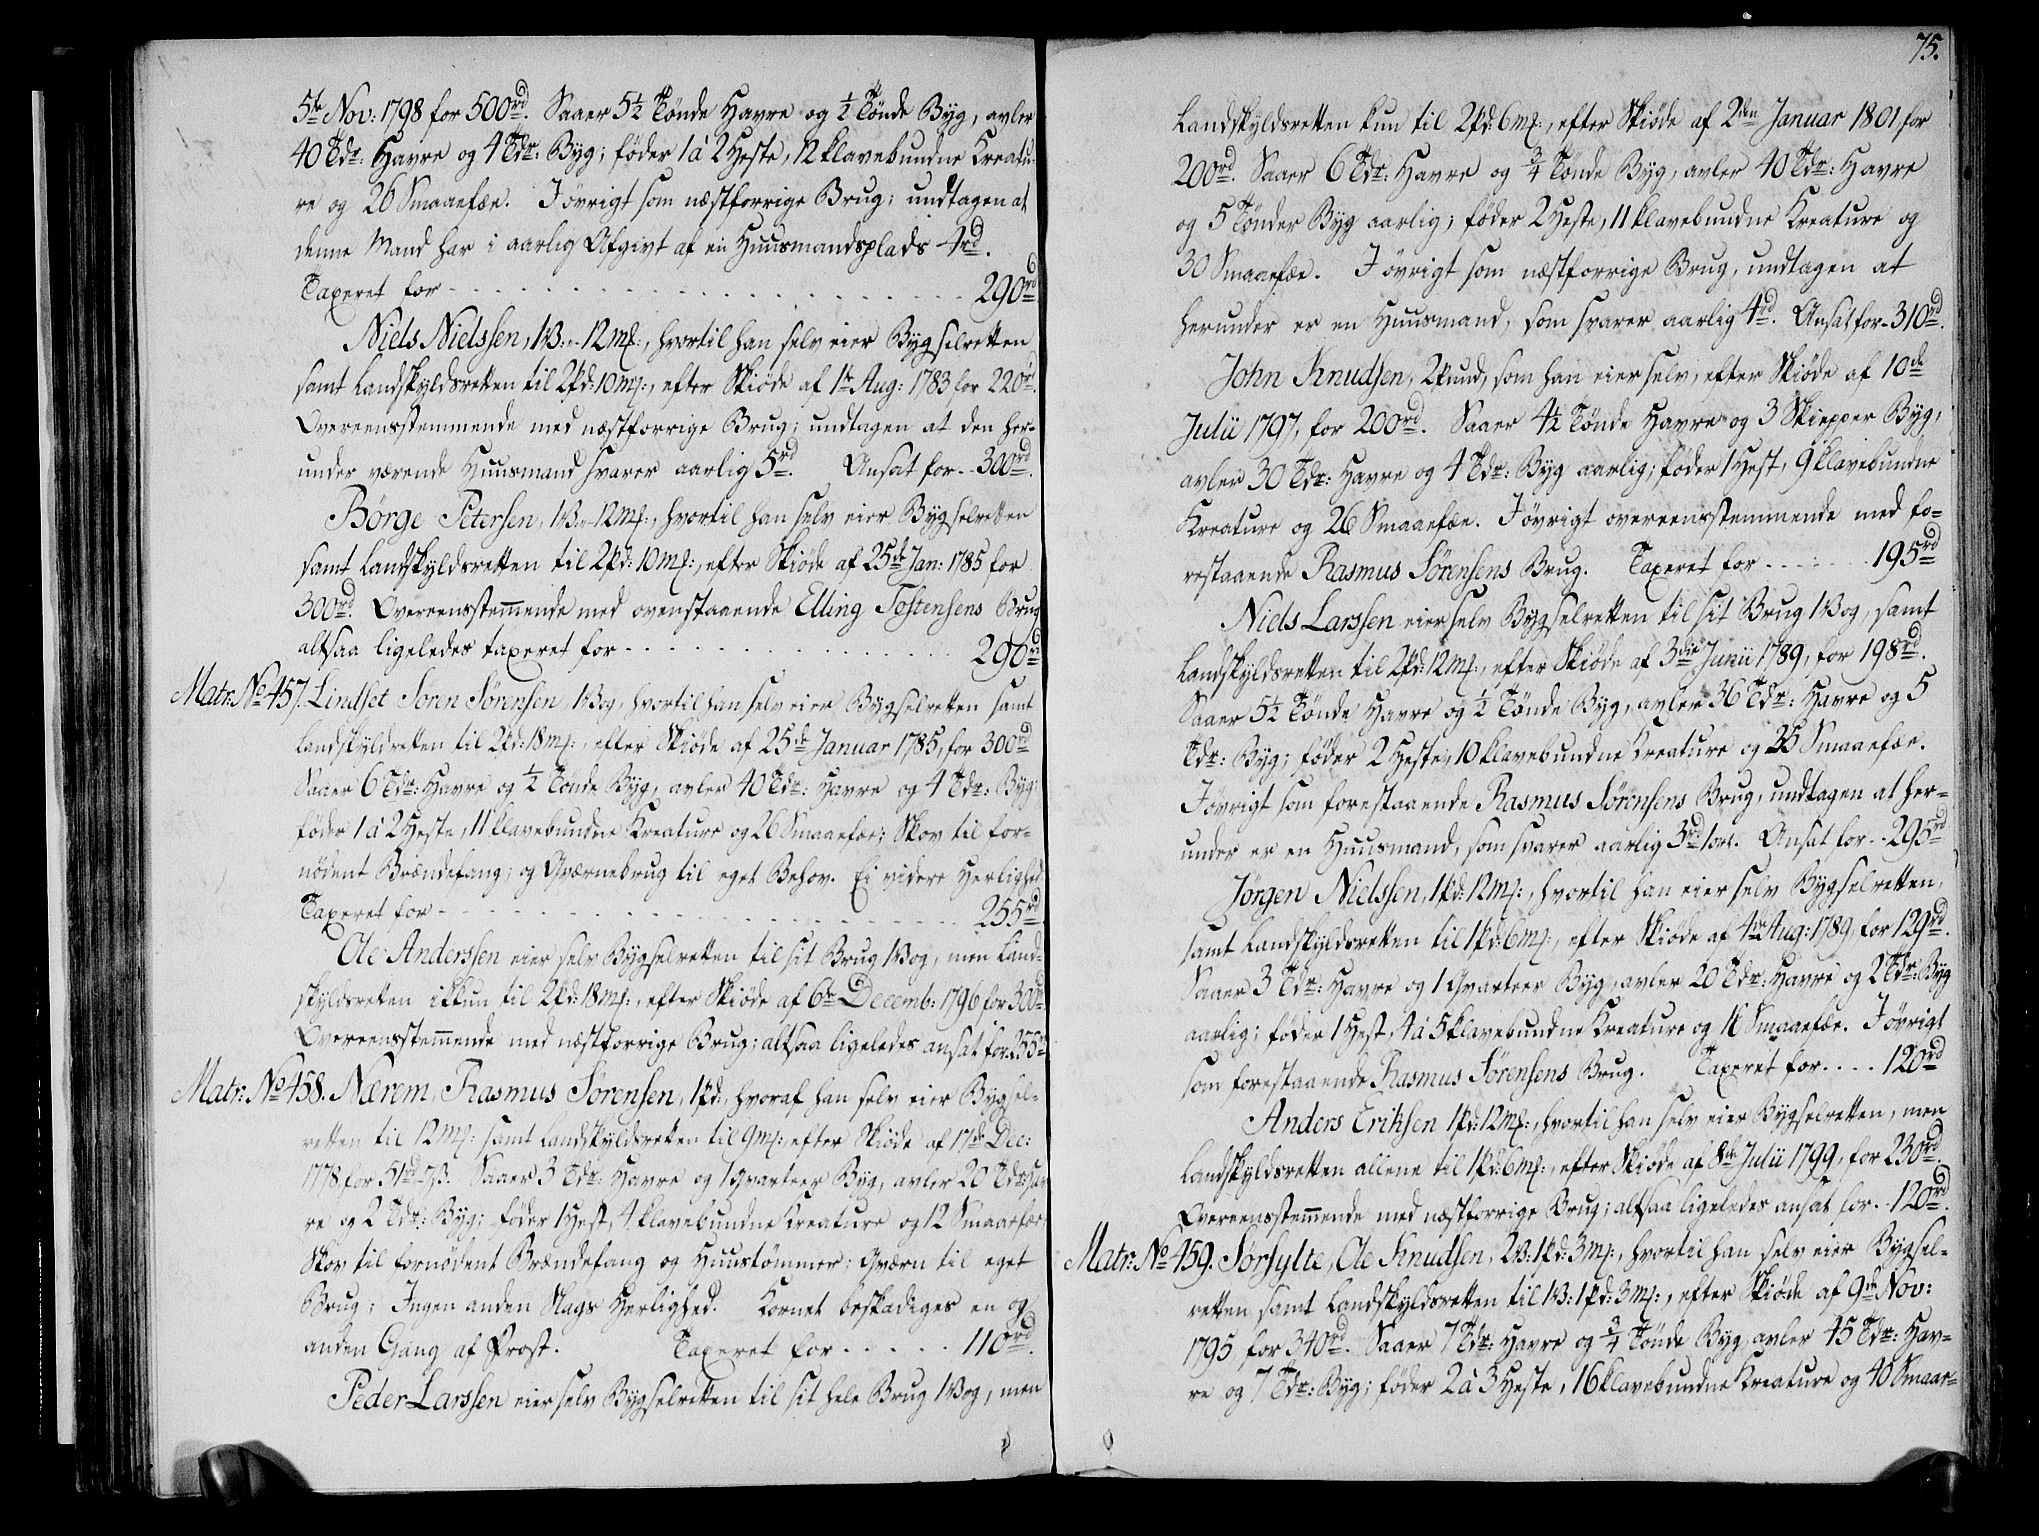 5te Nov: 1798 for 500rd. Saaer 5½ Tønde Havre og ½ Tønde Byg, avler
40 Tdr: Havre og 4 Tdr: Byg; føder 1 à 2 Heste, 12 klavebundne Kreatu-
re og 26 Smaaefæe. I øvrigt som næstforrige Brug; undtagen at
denne Mand har i aarlig Afgivt af en Huusmandsplads 4rd.
Taxeret for - - - - - - 290rd
Niels Nielssen, 1 V: - 12 m[k]:, hvortil han selv eier Bygselretten
samt Landskyldsretten til 2 pd: 10 m[k]:, efter Skiøde af 1te Aug: 1783 for 220rd.
Overeensstemmende med næstforrige Brug; undtagen at den her-
under værende Huusmand svarer aarlig 5rd. Ansat for - - 300rd.
Børge Petersen, 1 V: - 12 m[k]:, hvortil han selv eier Bygselretten
samt Landskyldsretten til 2 pd: 10 m[k]:, efter Skiøde af 25de Jan: 1785 for
300rd. Overeensstem̅ende med ovenstaaende Elling Tostensens Brug
altsaa ligeledes taxeret for - - - - - - 290rd
Matr: No 457. Lindset Søren Sørensen, 1 Vog, hvortil han selv eier Bygselretten samt
Landskyldretten til 2 pd: 18 m[k]:, efter Skiøde af 25de Januar 1785, for 300rd
Saaer 6 Tdr: Havre og ½ Tønde Byg, avler 40 Tdr: Havre og 4 Tdr: Byg:
føder 1 à 2 Heste, 11 klavebundne Kreature og 26 Smaaefæe; Skov til for-
nødent Brændefang; og Qværnebrug til eget Behov. Ei videre Herlighed
Taxeret for - - - - - - 255rd
Ole Anderssen eier selv Bygselretten til sit Brug 1 Vog, men Land-
skyldsretten ikkun til 2 pd: 18 m[k]:, efter Skiøde af 6te Decemb: 1796 for 300rd
Overeensstem̅ende med næstforrige Brug; altsaa ligeledes ansat for 255rd
Matr: No 458. Nærem, Rasmus Sørensen, 1 pd:, hvoraf han selv eier Bygsel-
retten til 12 m[k]: samt Landskyldsretten til 9 m[k]: efter Skiøde af 17de Dec:
1778, for 51rd. Saaer 3 Tdr: Havre og 1 Qvarteer Byg, avler 20 Tdr: Hav
re og 2 Tdr: Byg; føder 1 Hest, 4 klavebundne Kreature og 12 Smaaefæe;
Skov til fornødent Brændefang og Huustømmer; Qværn til eget
Brug; Ingen anden Slags Herlighed. Kornet beskadiges en og
anden Gang af Frost. Taxeret for - - - - - 110rd.
Peder Larssen eier selv Bygselretten til sit hele Brug 1 Vog, men
75.
Landskyldsretten kun til 2 pd: 6 m[k]:, efter Skiøde af 2den Januar 1801, for
200rd. Saaer 6 Tdr: Havre og ¾ Tønde Byg, avler 40 Tdr: Havre
og 5 Tønder Byg aarlig; føder 2 Heste, 11 klavebundne Kreature og
30 Smaaefæe. I øvrigt som næstforrige Brug, undtagen at
herunder er en Huusmand, som svarer aarlig 4rd. Ansat for - 310rd.
John Knudsen, 2 pund, som han eier selv, efter Skiøde af 10de
Julii 1797, for 200rd. Saaer 4½ Tønde Havre og 3 Skiepper Byg,
avler 30 Tdr: Havre og 4 Tdr: Byg aarlig; føder 1 Hest, 9 klavebundne
Kreature og 26 Smaaefæe. I øvrigt overeensstemmende med fo-
restaaende Rasmus Sørensens Brug. Taxeret for - - - - - 195rd
Niels Larssen eier selv Bygselretten til sit Brug 1 Vog, samt
Landskyldsretten til 2 pd: 12 m[k]:, efter Skiøde af 3die Junii 1789, for 198rd.
Saaer 5½ Tønde Havre og ½ Tønde Byg, avler 36 Tdr: Havre og 5
Tdr: Byg; føder 2 Heste, 10 klavebundne Kreature og 25 Smaaefæe.
I øvrigt som forestaaende Rasmus Sørensens Brug, undtagen at her-
under er en Huusmand, som svarer aarlig 3rd 1 ort. Ansat for - - 295rd
Jørgen Nielssen, 1 pd: 12 m[k]:, hvortil han eier selv Bygselretten,
samt Landskyldsretten til 1 pd: 6 m[k]:, efter Skiøde af 4de Aug: 1789, for 129rd.
Saaer 3 Tdr: Havre og 1 Qvarteer Byg, avler 20 Tdr: Havre og 2 Tdr: Byg
aarlig; føder 1 Hest, 4 à 5 klavebundne Kreature og 16 Smaaefæe. I øvrigt
som forestaaende Rasmus Sørensens Brug. Taxeret for - - - - 120rd
Anders Eriksen 1 pd: 12 m[k]:, hvortil han selv eier Bygselretten, men
Landskyldsretten allene til 1 pd: 6 m[k]:, efter Skiøde af 8de Julii 1799, for 230rd.
Overeensstem̅ende med næstforrige Brug; altsaa ligeledes ansat for - 120rd.
Matr: No 459. Sørsylte, Ole Knudsen, 2 V: 1 pd: 3 m[k]:, hvortil han selv eier Bygsel-
retten samt Landskyldsretten til 1 V: 1 pd: 3 m[k]:, efter Skiøde af 9de Nov:
1795 for 340rd. Saaer 7 Tdr: Havre og ¾ Tønde Byg, avler 45 Tdr: Hav-
re og 7 Tdr: Byg; føder 2 à 3 Heste, 16 klavebundne Kreature og 40 Smaae-